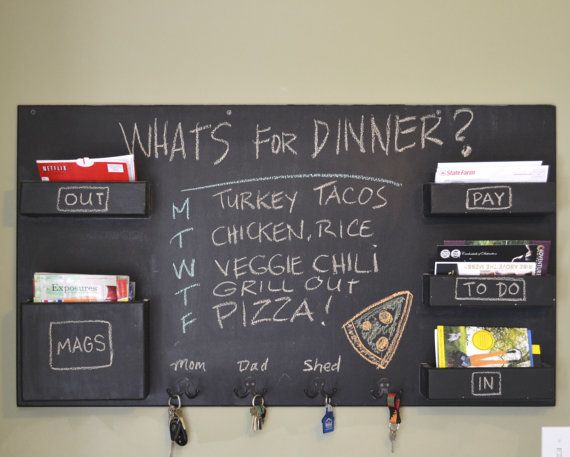 WHATS FOR DINNER?
NETFLIX
OUT
M TURKEY TACOS
T CHICKEN, RICE
W VEGGIE CHILI
T GRILL OUT
F PIZZA!
State Farm
PAY
TO DO
Exposures
MAGS
IN
Mom Dad Shed